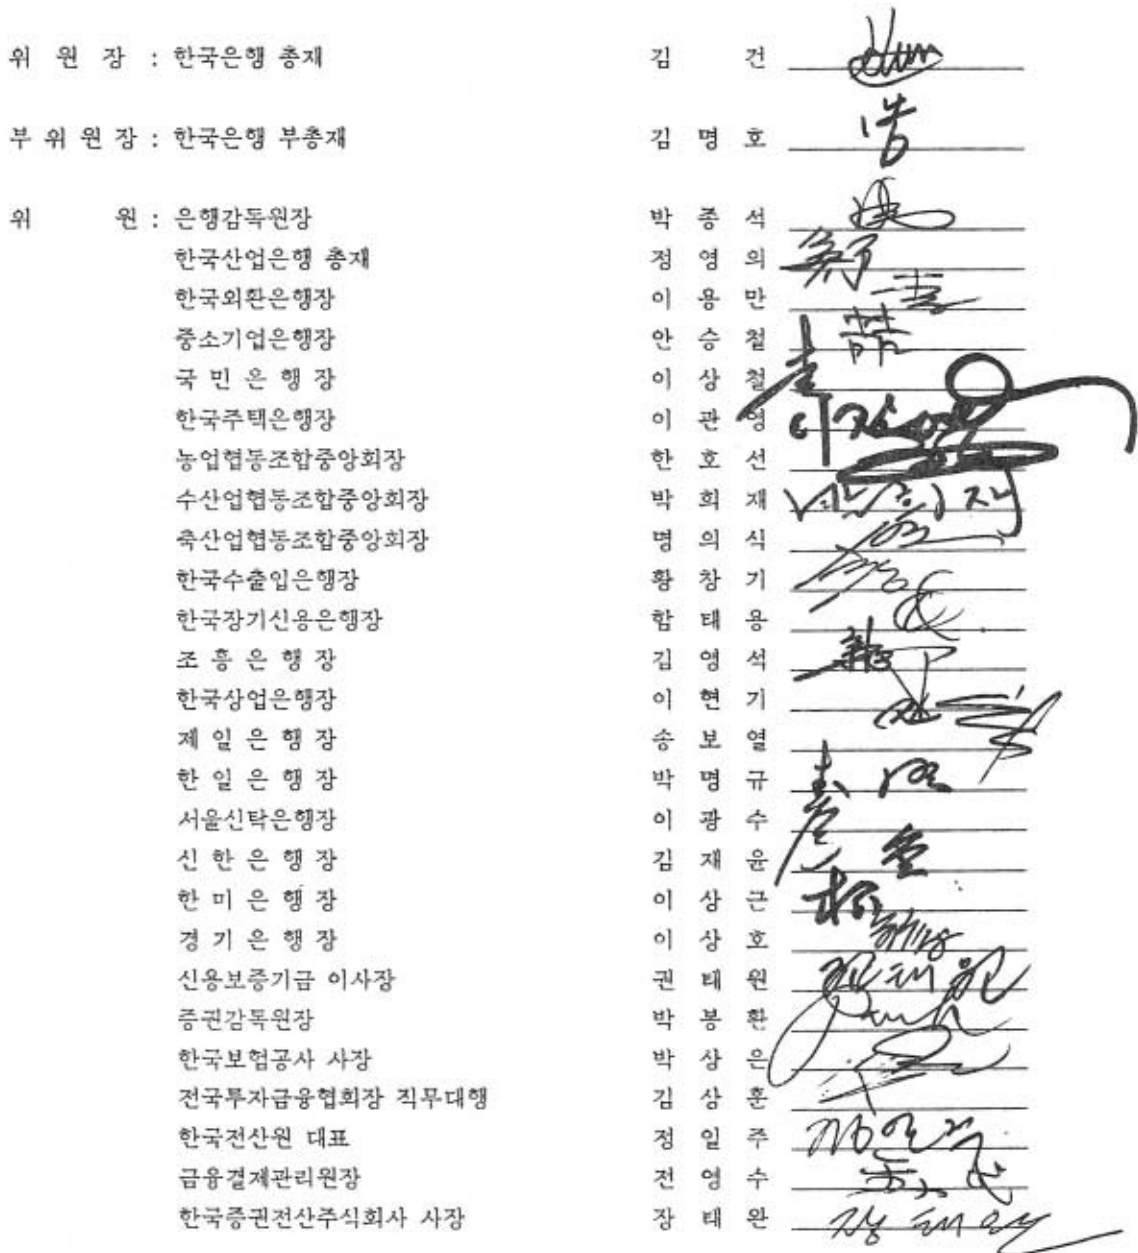 위 원 장 : 한국은행 총재 김 건
부 위 원 장 : 한국은행 부총재 김 명 호
위 원 : 은행감독원장 박 종 석
한국산업은행 총재 정 영 의
한국외환은행장 이 용 만
중소기업은행장 안 승 철
국 민 은 행 장 이 상 철
한국주택은행장 이 관 영
농업협동조합중앙회장 한 호 선
수산업협동조합중앙회장 박 희 재
축산업협동조합중앙회장 명 의 식
한국수출입은행장 황 창 기
한국장기신용은행장 함 태 용
조 흥 은 행 장 김 영 석
한국상업은행장 이 현 기
제 일 은 행 장 송 보 열
한 일 은 행 장 박 명 규
서울신탁은행장 이 광 수
신 한 은 행 장 김 재 윤
한 미 은 행 장 이 상 근
경 기 은 행 장 이 상 호
신용보증기금 이사장 권 태 원
증권감독원장 박 봉 환
한국보험공사 사장 박 상 은
전국투자금융협회장 직무대행 김 상 훈
한국전산원 대표 정 일 주
금융결제관리원장 전 영 수
한국증권전산주식회사 사장 장 태 완 장태완